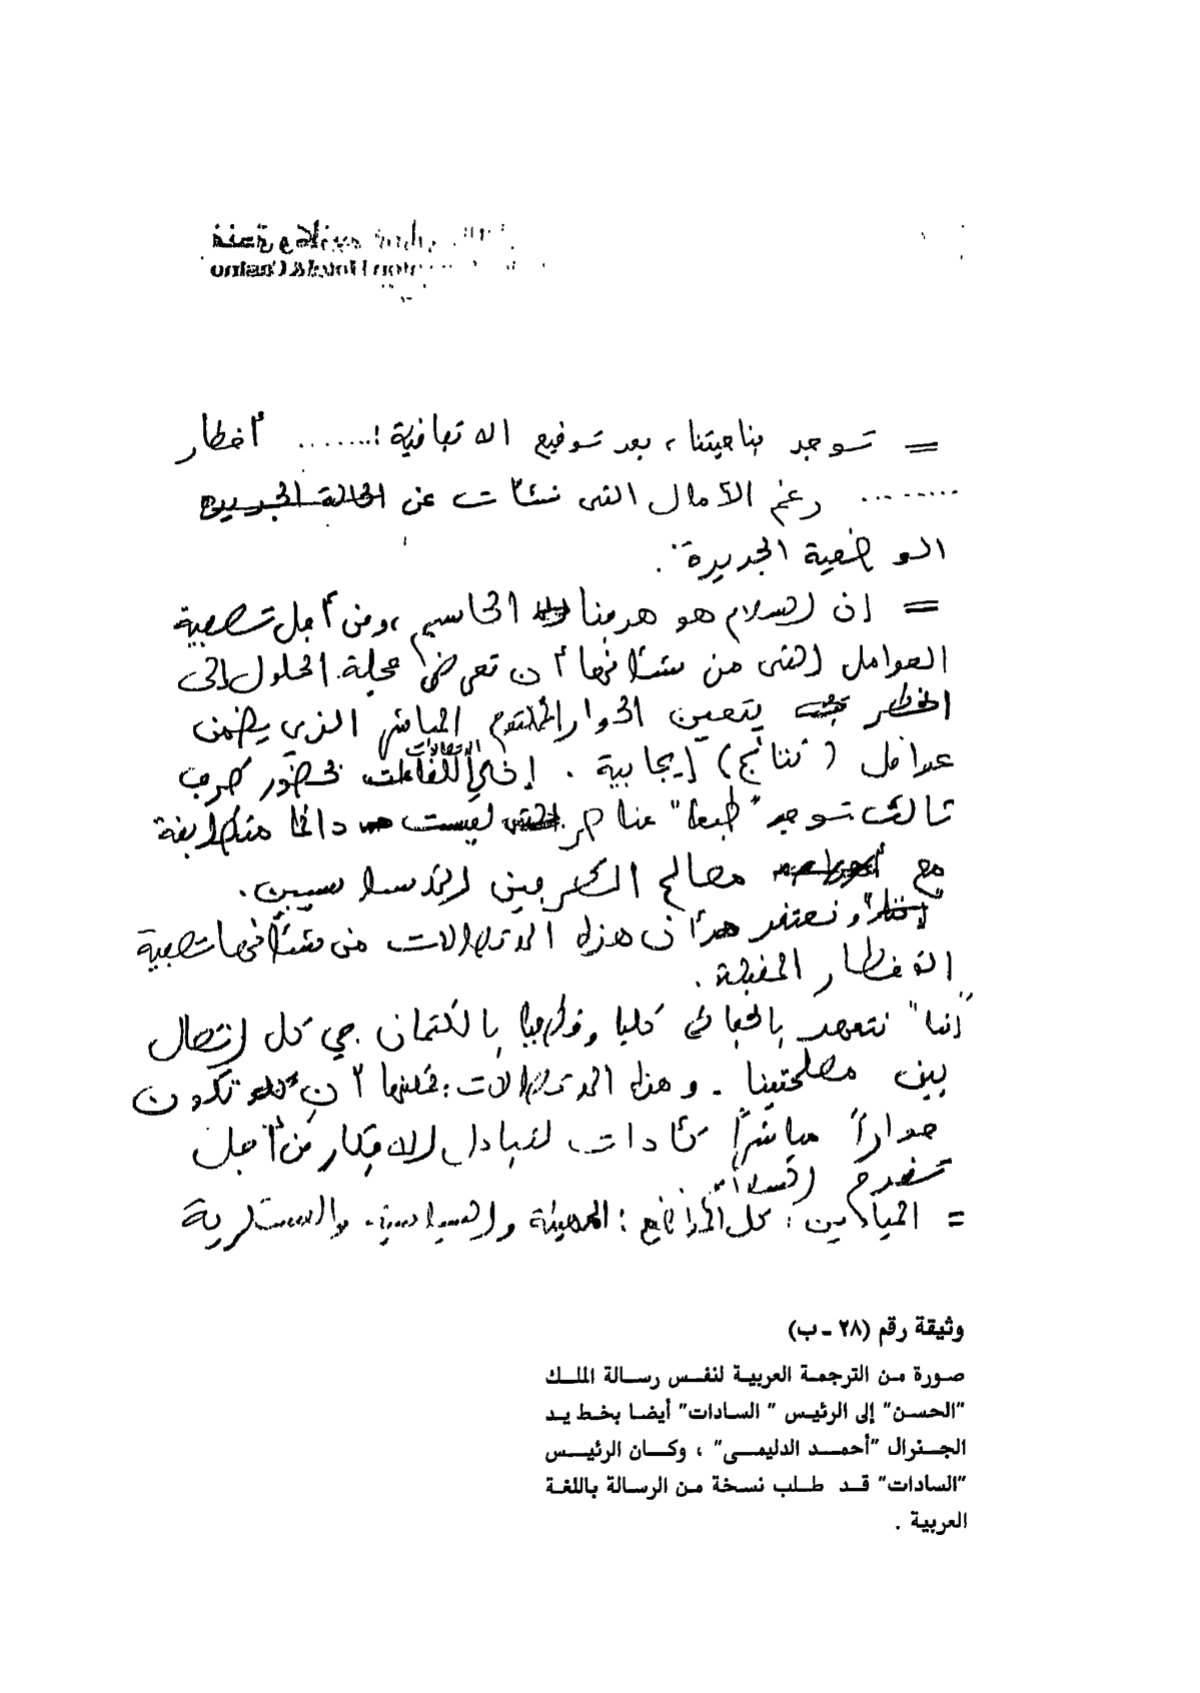 = توجد بناحيتنا، بعد توقيع الاتفاقية !....... أخطار
........ رغم الآمال التى نشأت عن الحالة الجديدة
الوضعية الجديدة.
= إن السلام هو هدفنا الحاسم، ومن أجل تصفية
العوامل التى من شأنها أن تعرض عجلة الحلول إلى
الخطر يتعين الحوار المباشر الذى يضمن
عوامل (نتائج) إيجابية. الاتصالات بحضور طرف
ثالث توجد "طبعا" عناصر ليست دائما متطابقة
مع مصالح الطرفين الأساسيين.
ونعتقد أن هذه الاتصالات من شأنها تصفية
الأخطار المقبلة.
"إننا" نتعهد بالحفاظ كليا بالكتمان في كل اتصال
بين مصلحتينا - وهذه الاتصالات يمكنها أن تكون
حواراً مباشراً كأداة لتبادل الأفكار من أجل
تقدم السلام
= الميادين: كل المواضيع: والسياسية والعسكرية
وثيقة رقم (٢٨ - ب)
صورة من الترجمة العربية لنفس رسالة الملك
"الحسن" إلى الرئيس " السادات" أيضا بخط يد
الجنرال "أحمد الدليمى" ، وكان الرئيس
"السادات" قد طلب نسخة من الرسالة باللغة
العربية .